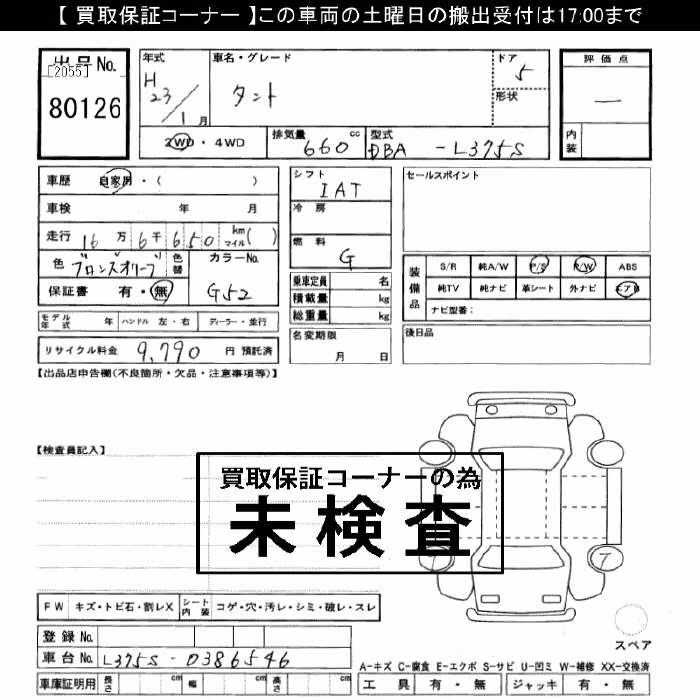 【 買取保証コーナー 】この車両の土曜日の搬出受付は17:00まで
出品No.
[2055]
80126
年式
H
23/1月
車名・グレード
タント
ドア
5
形状
2WD・4WD
排気量
660 cc
型式
DBA -L375S
評価点
一
内装
車歴 自家用・( )
車検 年 月
走行 16万6千650 km マイル( )
色 ブロンズオリーブ 色替
カラーNo.
G52
保証書 有・無
モデル年式 年 ハンドル 左・右 ディーラー・並行
リサイクル料金 9,790 円 預託済
シフト
IAT
冷房
燃料
G
乗車定員 名
積載量 kg
総重量 kg
名変期限
月 日
セールスポイント
装備品
S/R 純A/W P/S P/W ABS
純TV 純ナビ 革シート 外ナビ エアB
ナビ型番:
後日品
【出品店申告欄(不良箇所・欠品・注意事項等)】
【検査員記入】
買取保証コーナーの為
未検査
7
7
FW キズ・トビ石・割レX シート内装 コゲ・穴・汚レ・シミ・破レ・スレ
スペア
登録No.
車台No. L375S-0386546
車庫証明用 長さ cm 幅 cm 高さ cm
A-キズ C-腐食 E-エクボ S-サビ U-凹ミ W-補修 XX-交換済
工具 有・無 ジャッキ 有・無